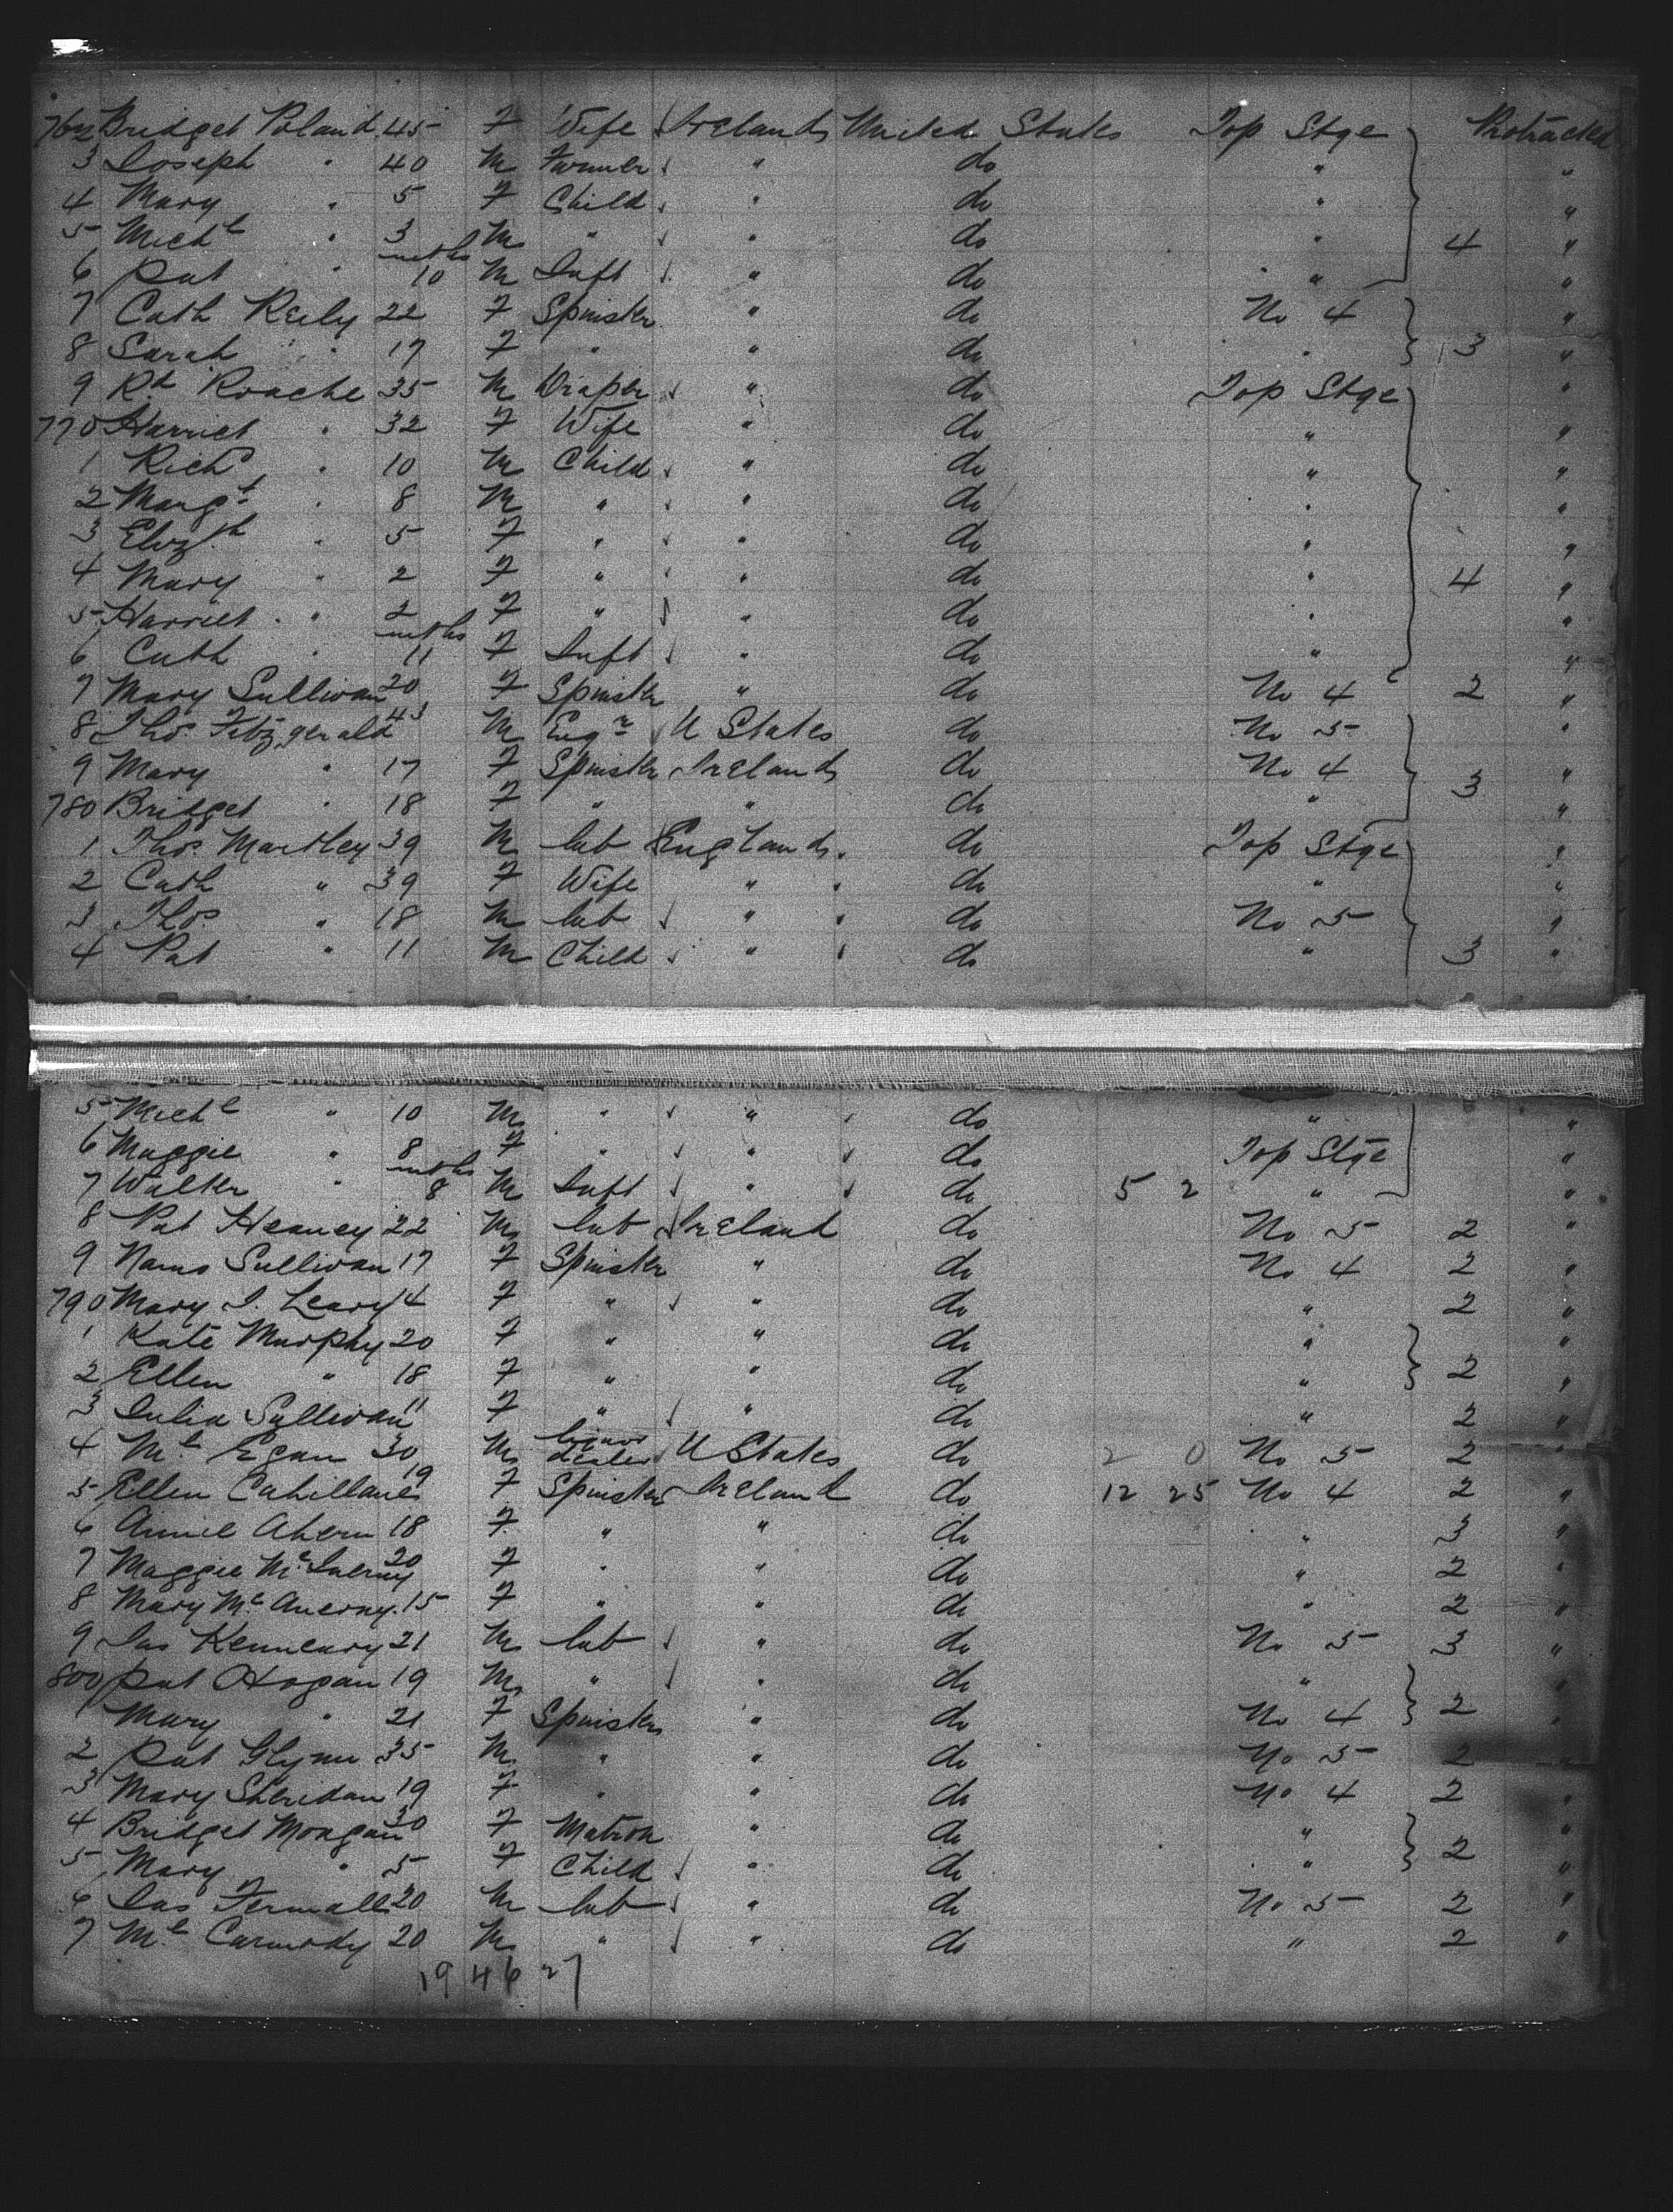 762 Bridget Poland 45 F Wife Ireland United States Top Stge Protracted
3 Joseph " 40 M Farmer " do " "
4 Mary " 5 F Child " do " "
5 Michl " 3 M " " do " 4 "
6 Pat " mths 10 M Inft " do " "
7 Cath Reily 22 F Spinster " do No 4 "
8 Sarah " 17 F " " do " 3 "
9 Rd Roache 35 M Draper " do Top Stge "
770 Harriet " 32 F Wife " do " "
1 Richd " 10 M Child " do " "
2 Margt " 8 M " " do " "
3 Elizth " 5 F " " do " "
4 Mary " 2 F " " do " 4 "
5 Harriet " 2 F " " do " "
6 Cath " mths 11 F Inft " do " "
7 Mary Sullivan 20 F Spinster " do No 4 2 "
8 Thos. Fitzgerald 43 M Engr U States do No 5 "
9 Mary " 17 F Spinster Ireland do No 4 "
780 Bridget " 18 F " " do " 3 "
1 Thos. Martley 39 M lab England do Top Stge "
2 Cath " 39 F Wife " do " "
3 Thos " 18 M lab " do No 5 "
4 Pat " 11 M Child " do " 3 "
5 Michl " 10 M " " do " "
6 Maggie " 8 F " " do Top Stge "
7 Walter " mths 8 M Inft " do 5 2 " "
8 Pat Heaney 22 M lab Ireland do No 5 2 "
9 Sullivan 17 F Spinster " do No 4 2 "
790 Mary J. Leary 14 F " " do " 2 "
1 Kate Murphy 20 F " " do " "
2 Ellen " 18 F " " do " 2 "
3 Julia Sullivan 11 F " " do " 2 "
4 Ml Egan 30 M liquor dealer U States do 2 0 No 5 2 "
5 Ellen Cahillane 19 F Spinster Ireland do 12 25 No 4 2 "
6 Annie Ahern 18 F " " do " 3 "
7 Maggie McInerny 20 F " " do " 2 "
8 Mary Mc 15 F " " do " 2 "
9 Jas Kenneary 21 M lab " do No 5 3 "
800 Pat Hogan 19 M " " do " "
1 Mary " 21 F Spinster " do No 4 2 "
2 Pat Glynn 35 M " " do No 5 2 "
3 Mary Sheridan 19 F " " do No 4 2 "
4 Bridget Mongan 30 F Matron " do " "
5 Mary " 5 F Child " do " 2 "
6 Jas 20 M lab " do No 5 2 "
7 Ml Carmody 20 M " " do " 2 "
19 46 27